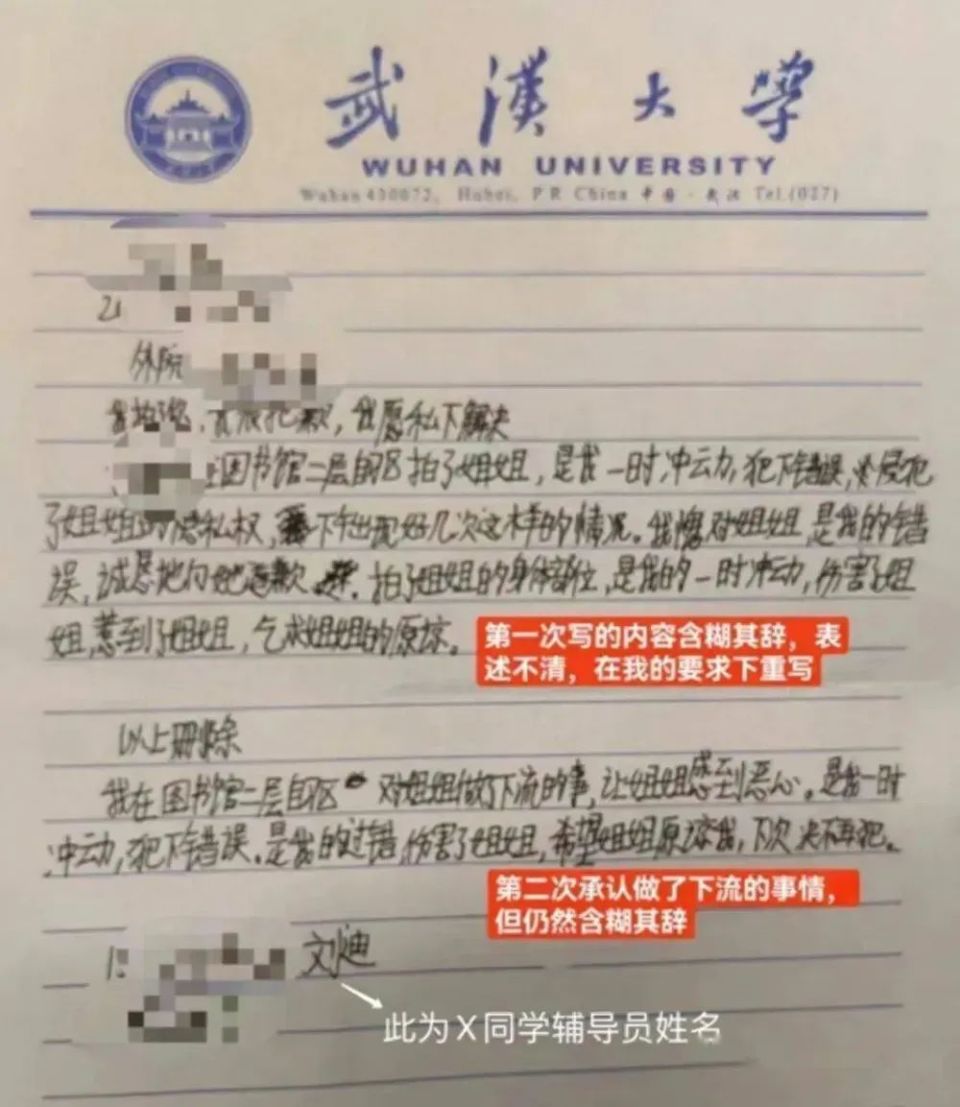 武漢大學
WUHAN UNIVERSITY
Wuhan 430072, Hubei, P R China 中国·武汉 Tel.(027)
外院
我愿私下解决
在图书馆二层自习区拍了姐姐，是我一时冲动，犯下错误，侵犯
了姐姐的隐私权，下午出现好几次这样的情况。我愧对姐姐，是我的错
误，诚恳地向她道歉。拍了姐姐的身体部位，是我的一时冲动，伤害了姐
姐，惹到了姐姐，乞求姐姐的原谅。
第一次写的内容含糊其辞，表
述不清，在我的要求下重写
以上删除
我在图书馆二层自习区 对姐姐做下流的事，让姐姐感到恶心。是我一时
冲动，犯下错误。是我的过错，伤害了姐姐，希望姐姐原谅我，下次决不再犯。
第二次承认做了下流的事情，
但仍然含糊其辞
文迪
此为X同学辅导员姓名